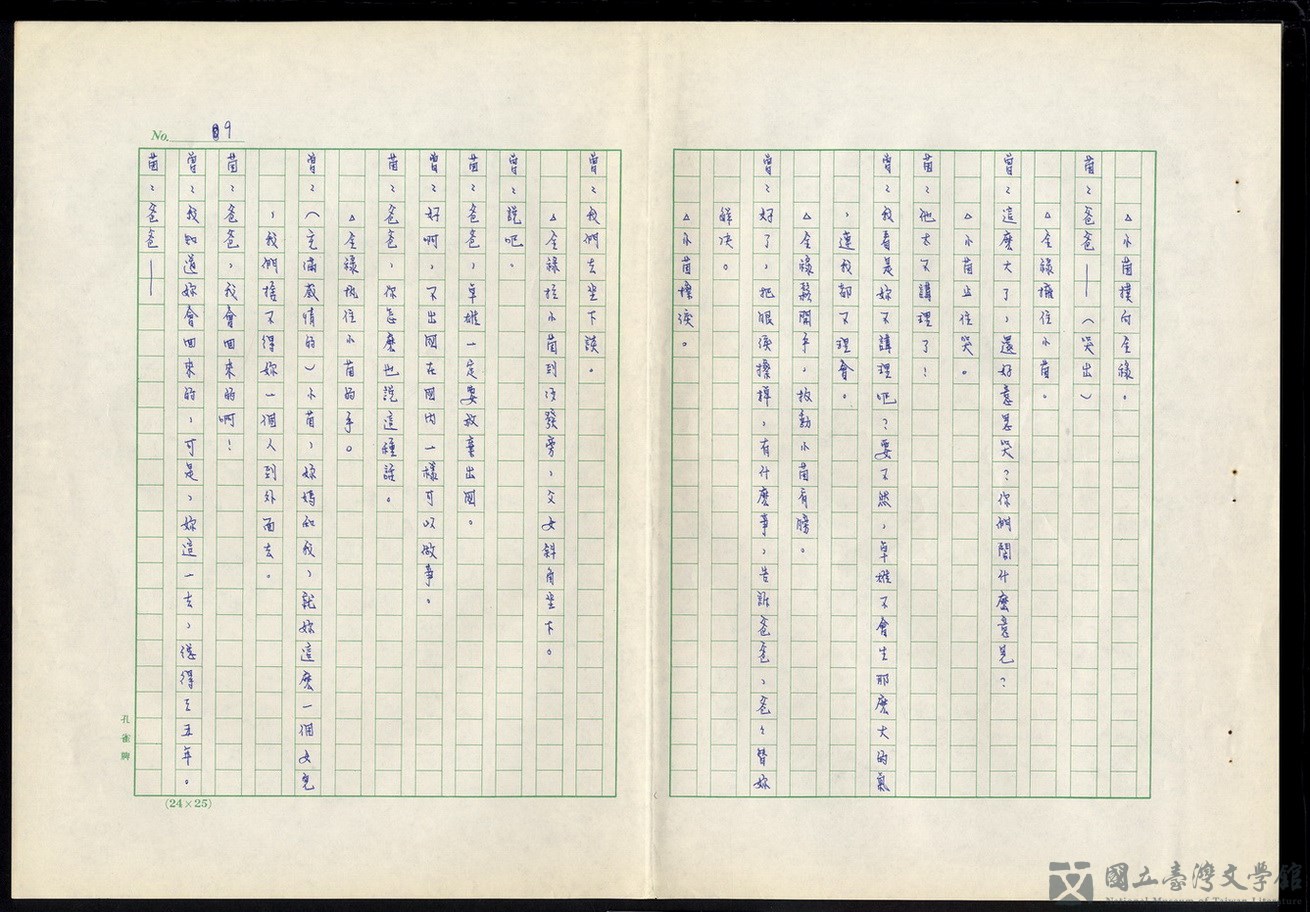 △小茵撲向全祿。
茵：爸爸——（哭出）
△全祿擁住小茵。
曾：這麼大了，還好意思哭？你們鬧什麼意見？
△小茵止住哭。
茵：他太不講理了！
曾：我看是妳不講理吧？要不然，卓雄不會生那麼大的氣
，連我都不理會。
△全祿鬆開手，扳動小茵肩膀。
曾：好了，把眼淚擦掉，有什麼事，告訴爸爸，爸爸替妳
解決。
△小茵擦淚。
曾：我們去坐下談。
△全祿拉小茵到沙發旁，父女斜角坐下。
曾：說吧。
茵：爸爸，卓雄一定要放棄出國。
曾：好啊，不出國在國內一樣可以做事。
茵：爸爸，你怎麼也說這種話。
△全祿執住小茵的手。
曾：（充滿感情的）小茵，妳媽和我，就妳這麼一個女兒
，我們捨不得妳一個人到外面去。
茵：爸爸，我會回來的啊！
曾：我知道妳會回來的，可是，妳這一去，總得三五年。
茵：爸爸——
No. 9
孔雀牌
(24×25)
國立臺灣文學館
National Museum of Taiwan Literature